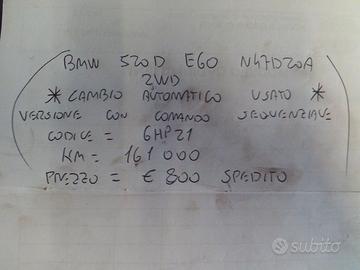 BMW 520D E60 N47D20A
2WD
* CAMBIO AUTOMATICO USATO *
VERSIONE CON COMANDO SEQUENZIALE
CODICE = 6HP21
KM = 161 000
PREZZO = € 800 SPEDITO
subito